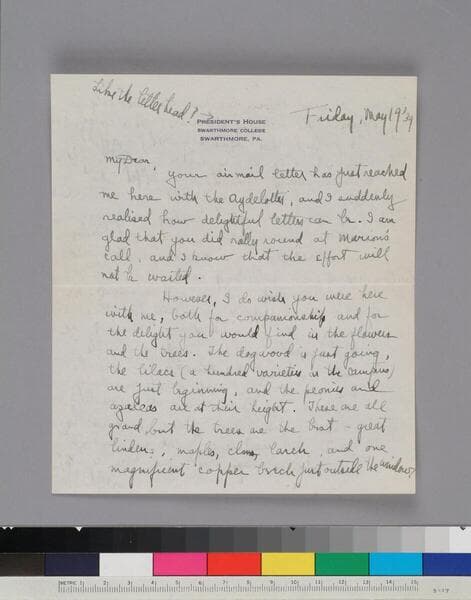 Like the letterhead?
Friday, May 19 '39
PRESIDENT'S HOUSE
SWARTHMORE COLLEGE
SWARTHMORE, PA.
My Dear,
Your airmail letter has just reached
me here with the Aydelottes, and I suddenly
realised how delightful letters can be. I am
glad that you did rally round at Marion's
call, and I know that the effort will
not be wasted.
However, I do wish you were here
with me, both for companionship and for
the delight you would find in the flowers
and the trees. The dogwood is just going,
the lilacs (a hundred varieties on the campus)
are just beginning, and the peonies and
azaleas are at their height. These are all
grand, but the trees are the best - great
lindens, maples, elms, larch, and one
magnificent copper beech just outside the window,
METRIC 1 2 3 4 5 6 7 8 9 10 11 12 13 14 15